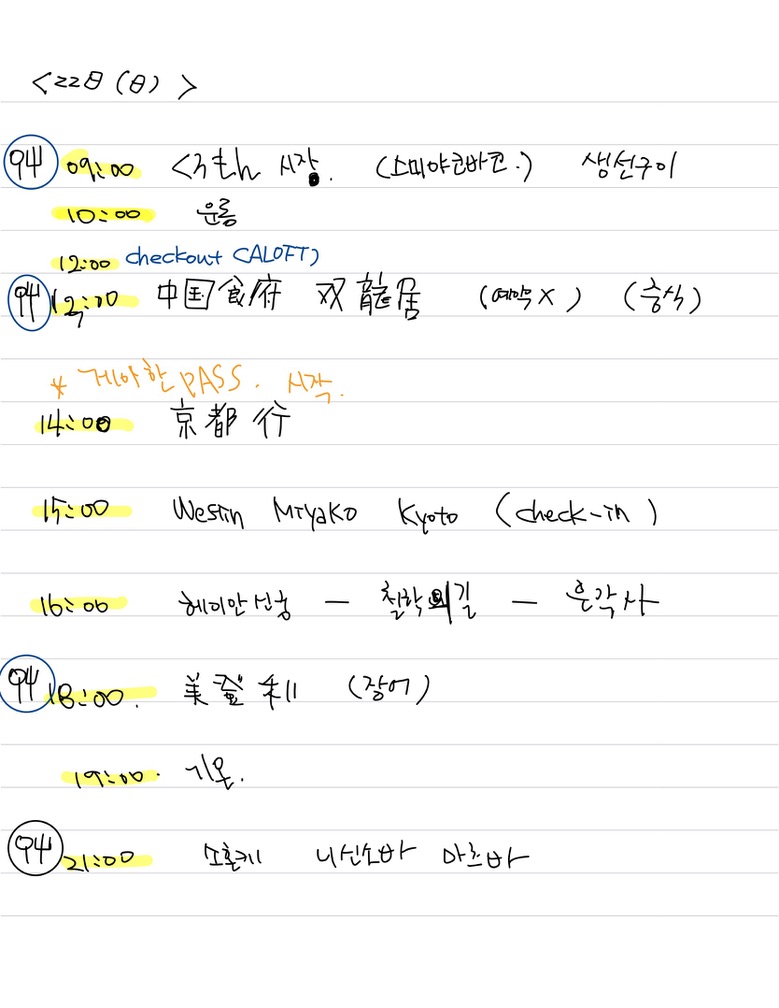 <22日(日)>
09:00 くろもん 시장. (소미야코바코.) 생선구이
10:00 운동
12:00 checkout (ALOFT)
中国食府 双龍居 (예약 X) (중식)
* 게이한 PASS. 시작.
14:00 京都 行
15:00 Westin Miyako Kyoto (check-in)
16:00 헤이안신궁 — 철학의길 — 은각사
18:00. 美登利 (장어)
19:00. 기온.
21:00 소혼케 니신소바 마츠바